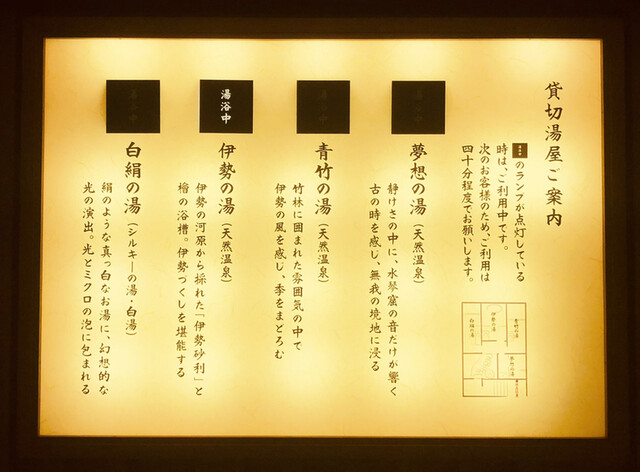 貸切湯屋ご案内
のランプが点灯している
時は、ご利用中です。
次のお客様のため、ご利用は
四十分程度でお願いします。
青竹の湯
伊勢の湯
白絹の湯
夢想の湯
夢想の湯（天然温泉）
静けさの中に、水琴窟の音だけが響く
古の時を感じ、無我の境地に浸る
青竹の湯（天然温泉）
竹林に囲まれた雰囲気の中で
伊勢の風を感じ、季をまどろむ
湯浴中
伊勢の湯（天然温泉）
伊勢の河原から採れた「伊勢砂利」と
檜の浴槽。伊勢づくしを堪能する
白絹の湯（シルキーの湯・白湯）
絹のような真っ白なお湯に、幻想的な
光の演出。光とミクロの泡に包まれる